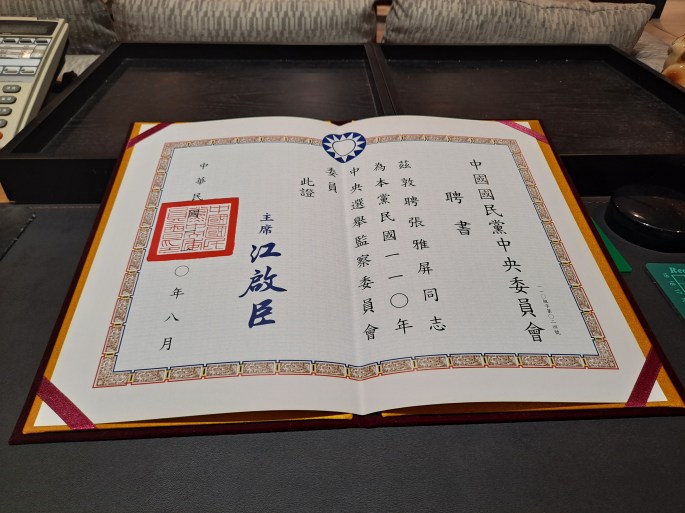 中國國民黨中央委員會
聘書
茲敦聘張雅屏同志
為本黨民國一一〇年
中央選舉監察委員會
委員
此證
主席 江啟臣
中華民國 〇年八月